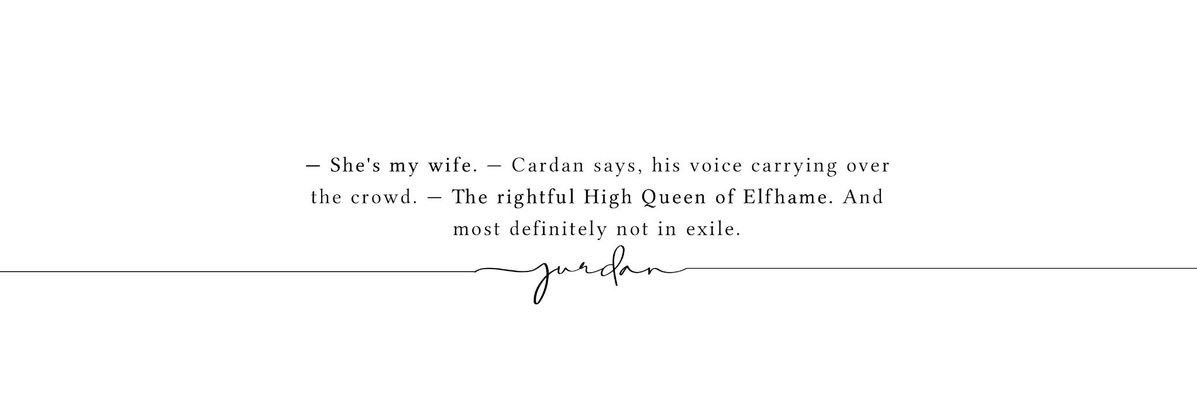 — She's my wife. — Cardan says, his voice carrying over
the crowd. — The rightful High Queen of Elfhame. And
most definitely not in exile.
jurdan